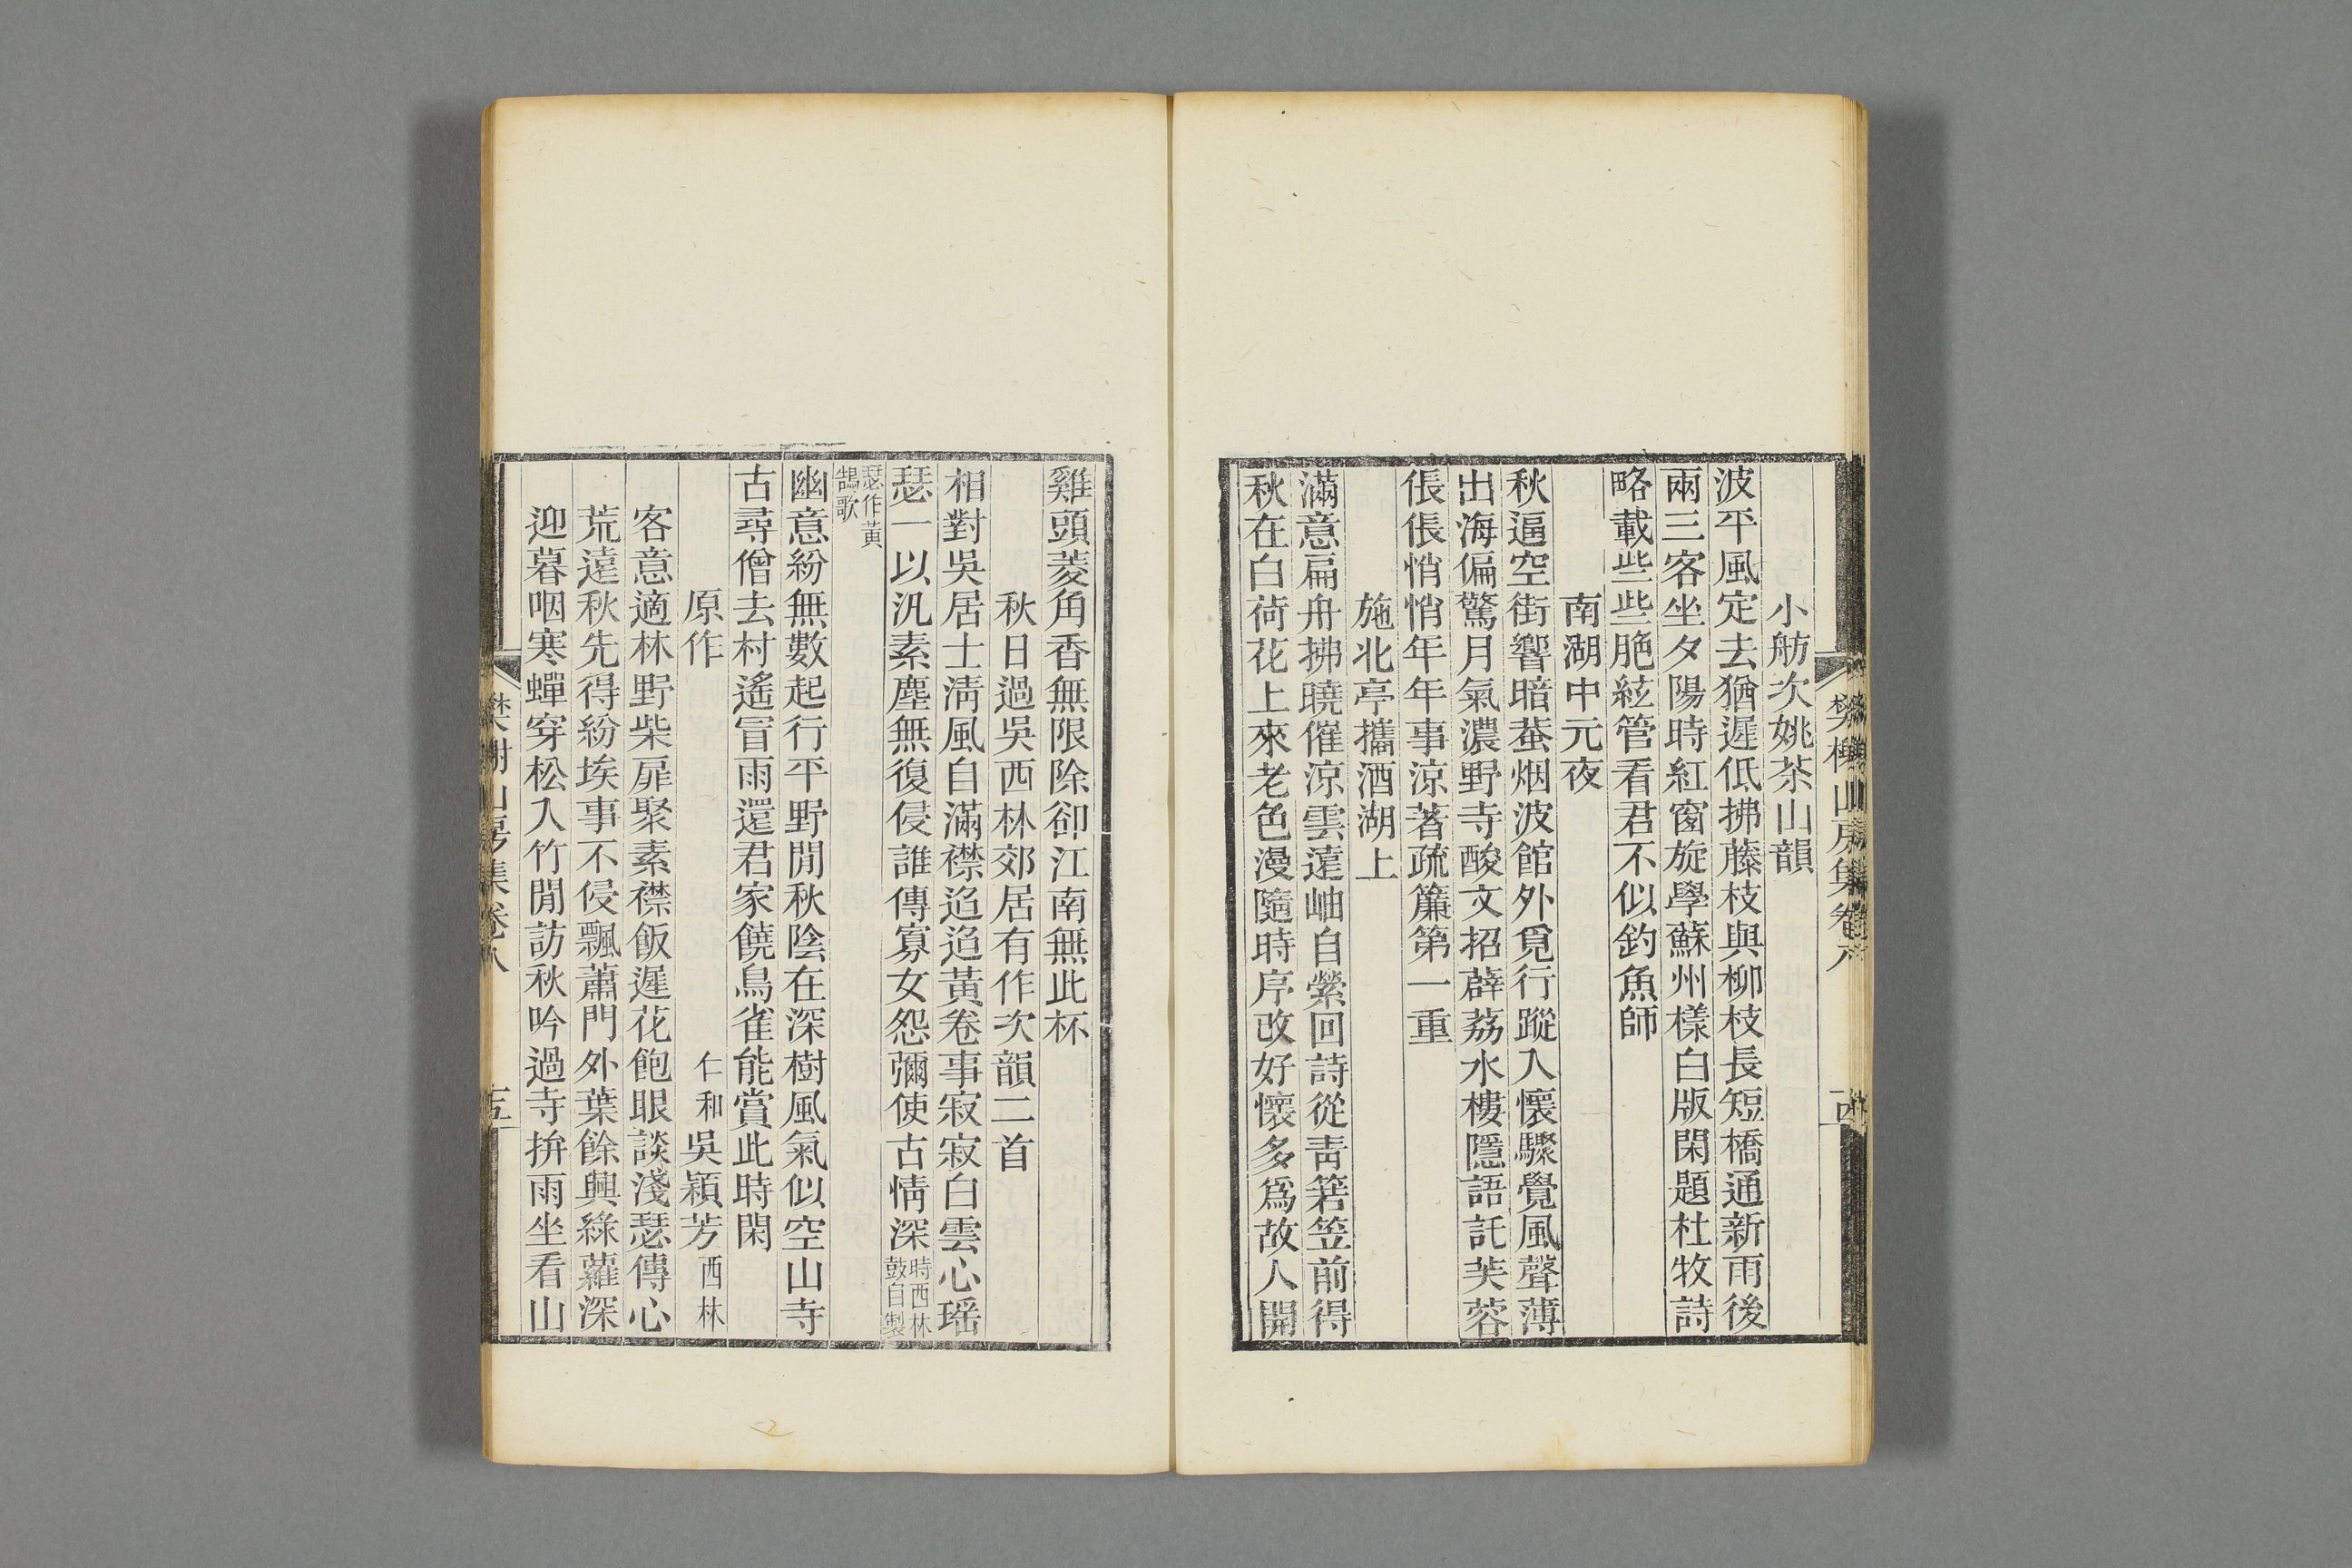 樊榭山房集卷八
小舫次姚茶山韻
波平風定去猶遲低拂藤枝與柳枝長短橋通新雨後
兩三客坐夕陽時紅窗旋學蘇州樣白版閑題杜牧詩
略載些些脆絃管看君不似釣魚師
南湖中元夜
秋逼空街響暗蛩烟波館外覓行蹤入懷驟覺風聲薄
出海偏驚月氣濃野寺酸文招薜荔水樓隱語託芙蓉
倀倀悄悄年年事涼著疏簾第一重
施北亭攜酒湖上
滿意扁舟拂曉催涼雲遠岫自縈回詩從青箬笠前得
秋在白荷花上來老色漫隨時序改好懷多爲故人開
雞頭菱角香無限除卻江南無此杯
秋日過吳西林郊居有作次韻二首
相對吳居士淸風自滿襟迢迢黃卷事寂寂白雲心瑤
瑟一以汎素塵無復侵誰傳寡女怨彌使古情深時西林鼓自製
瑟作黃鵠歌
幽意紛無數起行平野閒秋陰在深樹風氣似空山寺
古尋僧去村遙冒雨還君家饒鳥雀能賞此時閑
原作　仁和吳穎芳西林
客意適林野柴扉聚素襟飯遲花飽眼談淺瑟傳心
荒遠秋先得紛埃事不侵飄蕭門外葉餘興綠蘿深
迎暮咽寒蟬穿松入竹閒訪秋吟過寺拚雨坐看山
樊榭山房集卷八　十五